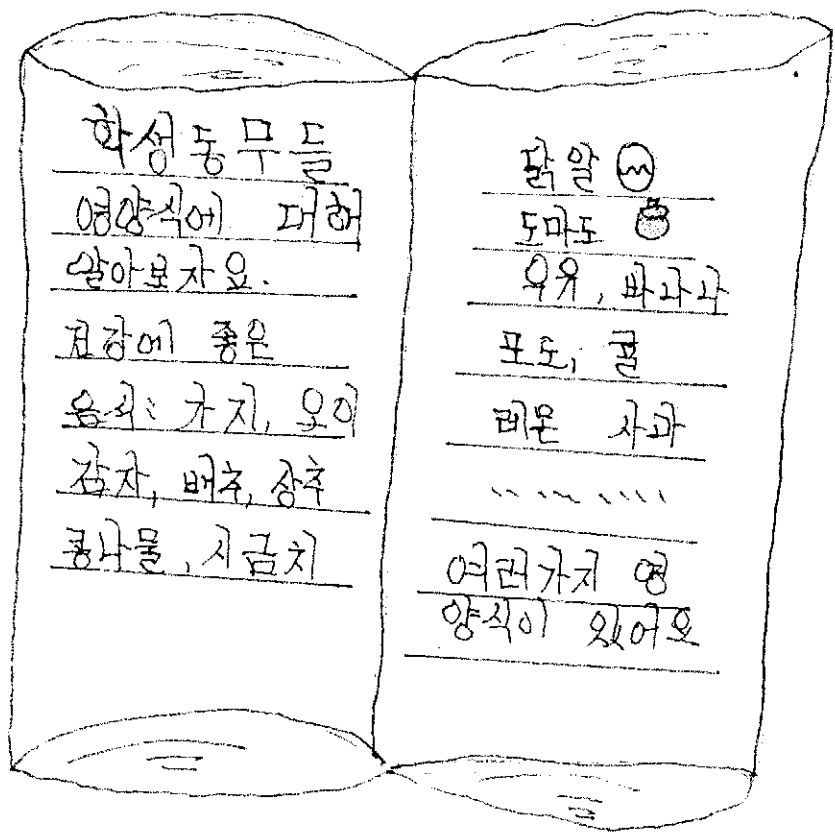 학생동무들
영양식에 대해
알아보자요.
건강에 좋은
음식: 가지, 오이
감자, 배추, 상추
콩나물, 시금치
닭알
도마도
우유, 바라과
포도, 귤
레몬 사과
여러가지 영
양식이 있어요